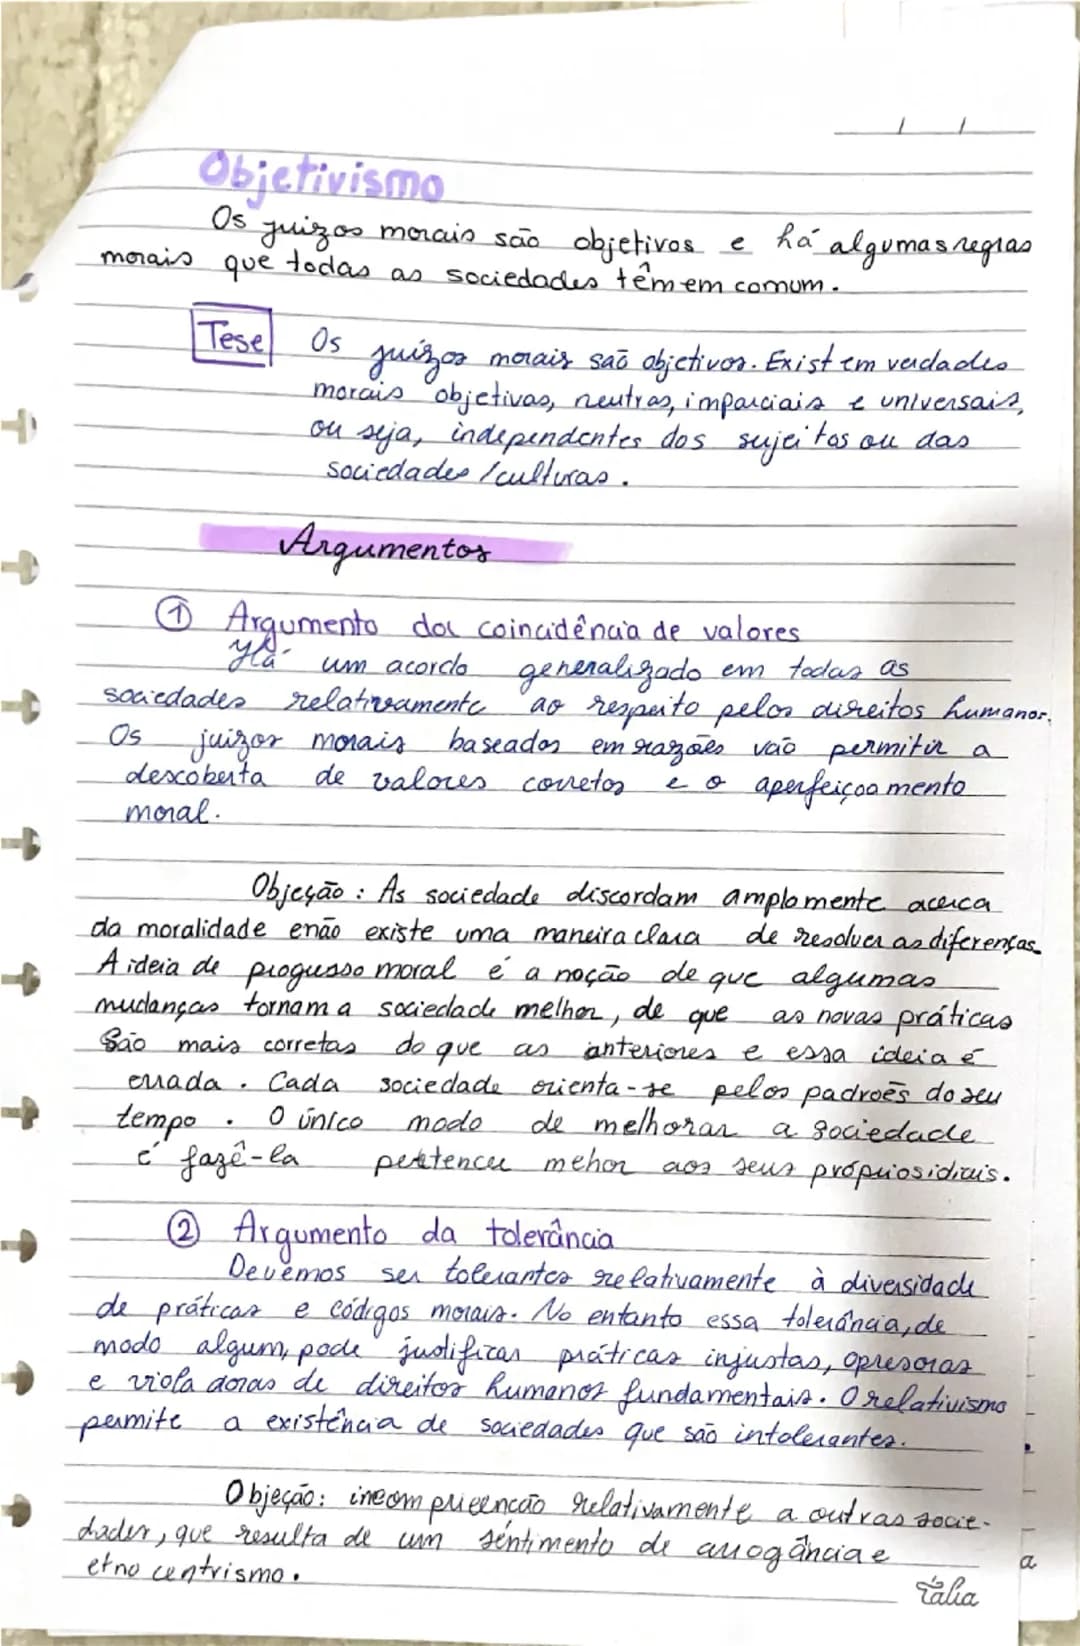 Objetivismo
Os juizos morais são objetivos e há algumas regras
morais que todas as sociedades têm em comum.
Tese Os juízos morais saõ objetivos. Existem verdades
morais objetivas, neutras, imparciais e universais,
ou seja, independentes dos sujeitos ou das
sociedades/culturas.
Argumentos
1 Argumento da coincidência de valores
Há um acordo generalizado em todas as
sociedades relativamente ao respeito pelos direitos humanos.
Os juizos morais baseados em razões vão permitir a
descoberta de valores corretos e o aperfeiçoamento
moral.
Objeção: As sociedade discordam amplamente acerca
da moralidade e não existe uma maneira clara de resolver as diferenças.
A ideia de progresso moral é a noção de que algumas
mudanças tornam a sociedade melhor, de que as novas práticas
São mais corretas do que as anteriores e essa ideia é
errada. Cada sociedade orienta-se pelos padroẽs do seu
tempo. O único modo de melhorar a sociedade
é fazê-la pertencer mehor aos seus próprios idiais.
2 Argumento da tolerância
Devemos ser tolerantes relativamente à diversidade
de práticas e códigos morais. No entanto essa tolerância, de
modo algum, pode justificar práticas injustas, opresoras
e violadoras de direitos humanos fundamentais. O relativismo
permite a existência de sociedades que são intolerantes.
Objeção: incompreencão relativamente a outras socie-
dades, que resulta de um sentimento de arrogância e
etnocentrismo.
a
Tália